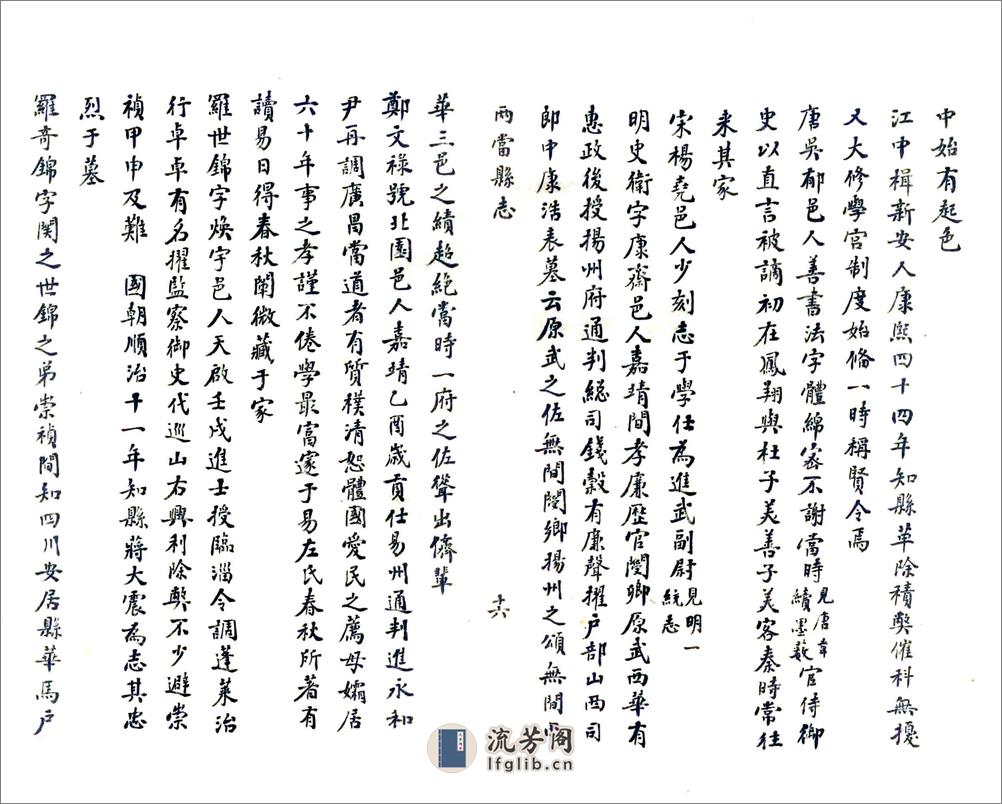 中始有起色
江中楫新安人康熙四十四年知縣革除積弊催科無擾
又大修學宮制度始備一時稱賢令焉
唐吳郁邑人善書法字體綿密不謝當時見唐韋續墨藪官侍御
史以直言被謫初在鳳翔與杜子美善子美客秦時常往
来其家
宋楊堯邑人少刻志于學仕為進武副尉見明一統志
明史衛字康齋邑人嘉靖間孝廉歷官閿鄉原武西華有
惠政後授揚州府通判總司錢穀有廉聲擢戶部山西司
郎中康浩表墓云原武之佐無間閿鄉揚州之頌無間西
兩當縣志
十六
華三邑之績超絕當時一府之佐聲出儕輩
鄭文祿號北園邑人嘉靖乙酉歲貢仕易州通判進永和
尹再調廣昌當道者有質樸清恕體國愛民之薦母孀居
六十年事之孝謹不倦學最富邃于易左氏春秋所著有
讀易日得春秋闡微藏于家
羅世錦字煥宇邑人天啟壬戌進士授臨淄令調蓬萊治
行卓卓有名擢監察御史代巡山右興利除弊不少避崇
禎甲申及難 國朝順治十一年知縣蔣大震為志其忠
烈于墓
羅奇錦字闋之世錦之弟崇禎間知四川安居縣華馬戶
流芳阁
lfglib.cn